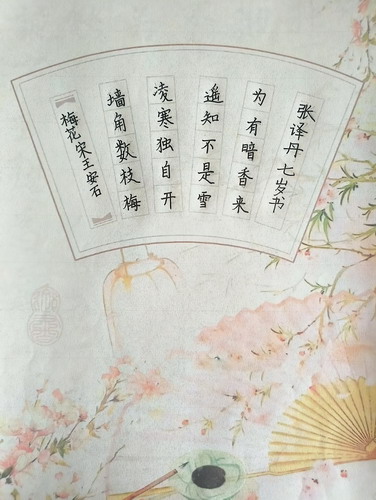 梅花宋王安石
墙角数枝梅
凌寒独自开
遥知不是雪
为有暗香来
张译丹七岁书